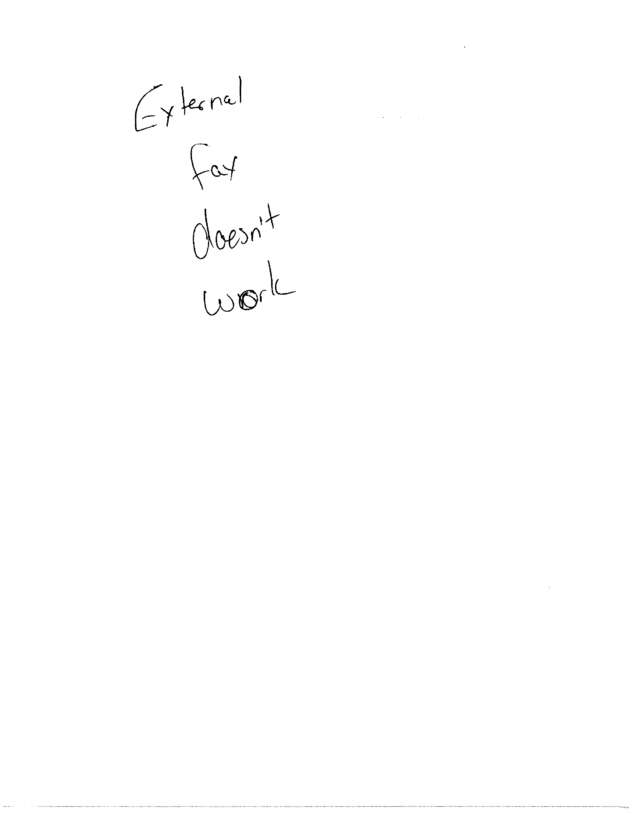 External
fax
doesn't
work